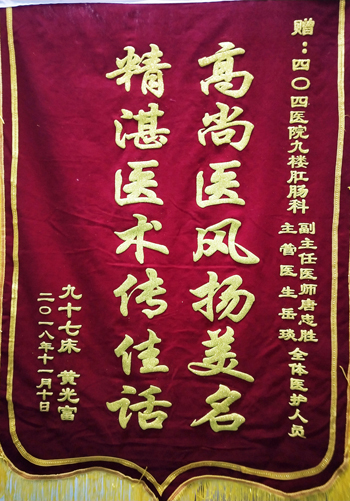 赠：四〇四医院九楼肛肠科
副主任医师唐忠胜
主管医生岳琰
全体医护人员
高尚医风扬美名
精湛医术传佳话
九十七床 黄光富
二〇一八年十一月十日